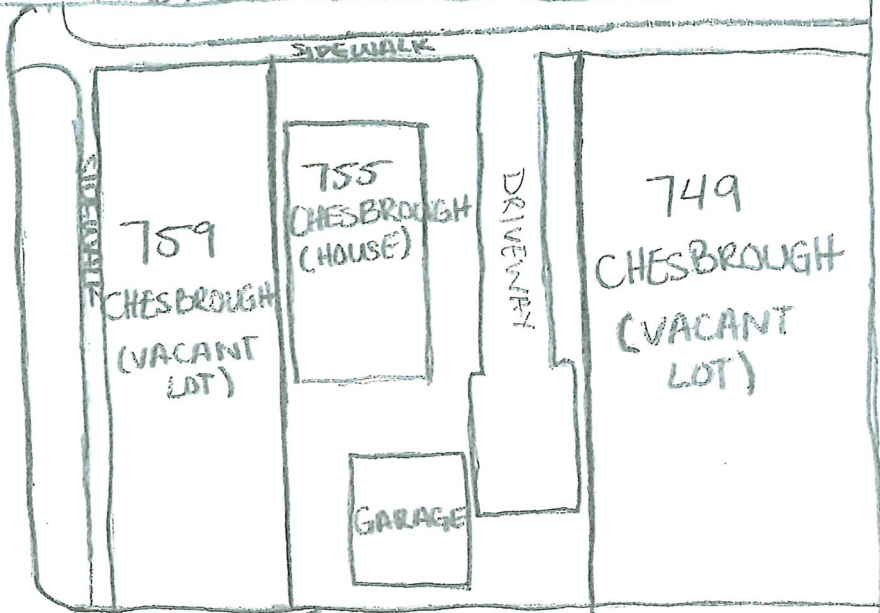 SIDEWALK
SIDEWALK
759
CHESBROUGH
(VACANT
LOT)
755
CHESBROUGH
(HOUSE)
DRIVEWAY
GARAGE
749
CHESBROUGH
(VACANT
LOT)